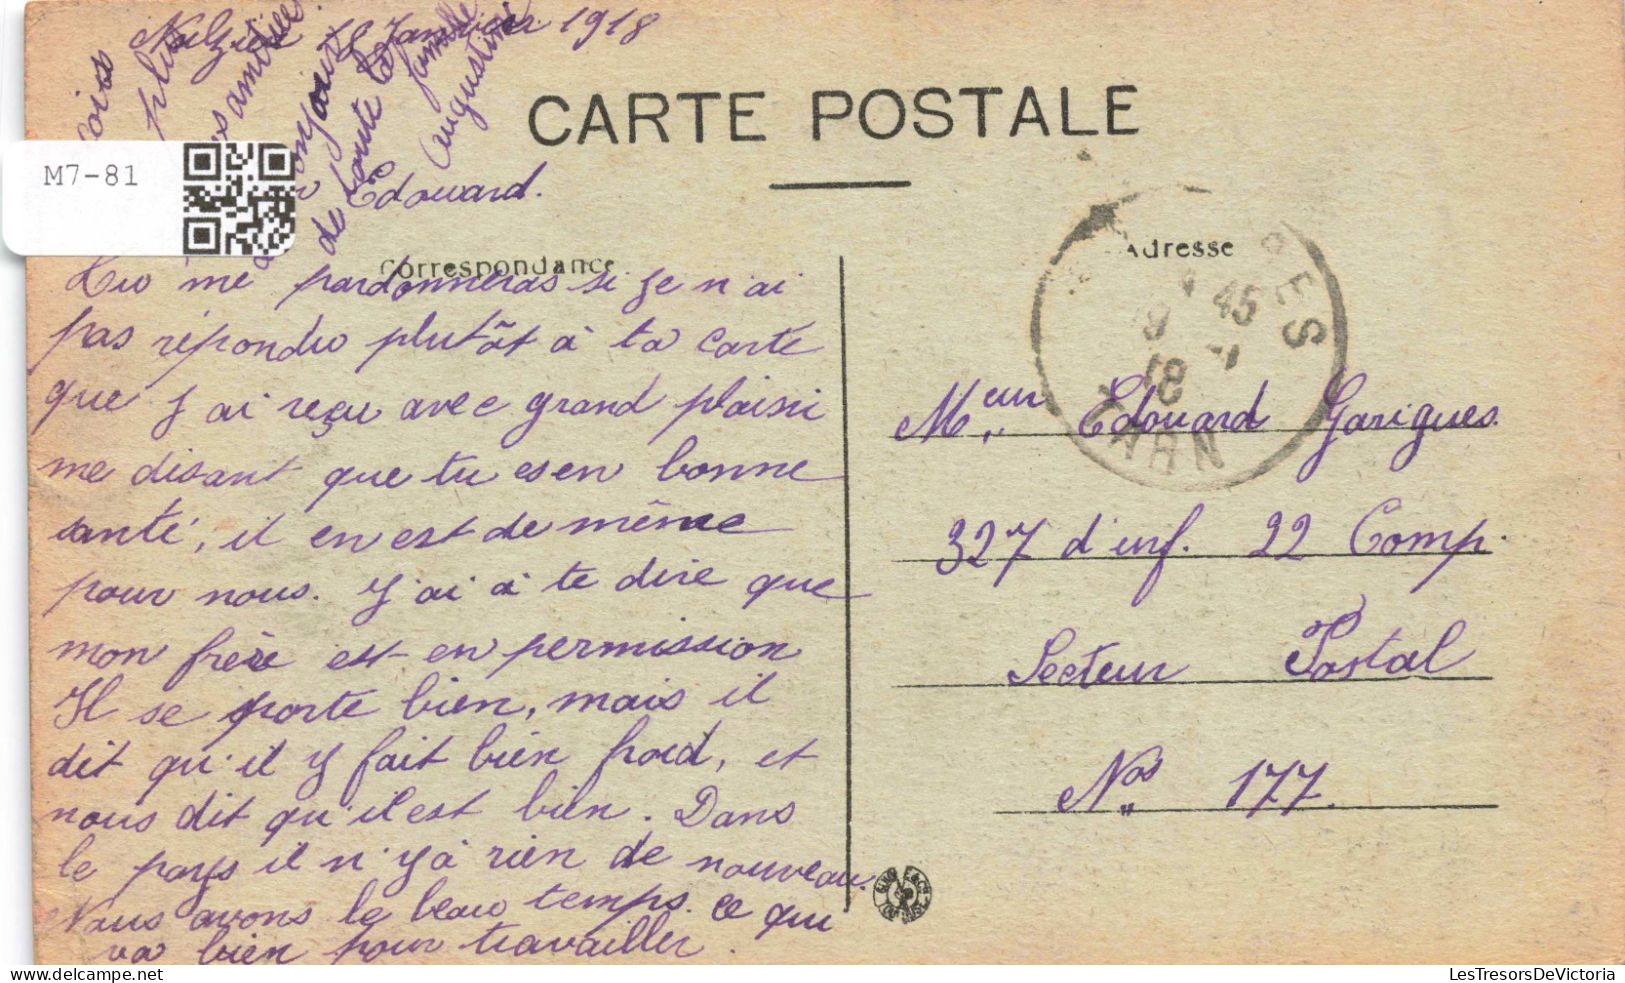 Janvier 1918
CARTE POSTALE
M7-81
Édouard.
Correspondance
Adresse
Tu me pardonneras si je n'ai
pas répondu plutôt à ta carte
que j'ai reçu avec grand plaisir
me disant que tu es en bonne
santé, il en est de même
pour nous. J'ai à te dire que
mon frère est en permission
Il se porte bien, mais il
dit qu'il y fait bien froid, et
nous dit qu'il est bien. Dans
le pays il n'y a rien de nouveau.
Nous avons le beau temps. ce qui
va bien pour travailler.
bonjour
de toute la
famille
Augustine
45
18
TARN
Meur Edouard Garigues.
327 d'inf. 22 Comp.
Secteur Postal
Nos 177.
LesTresorsDeVictoria